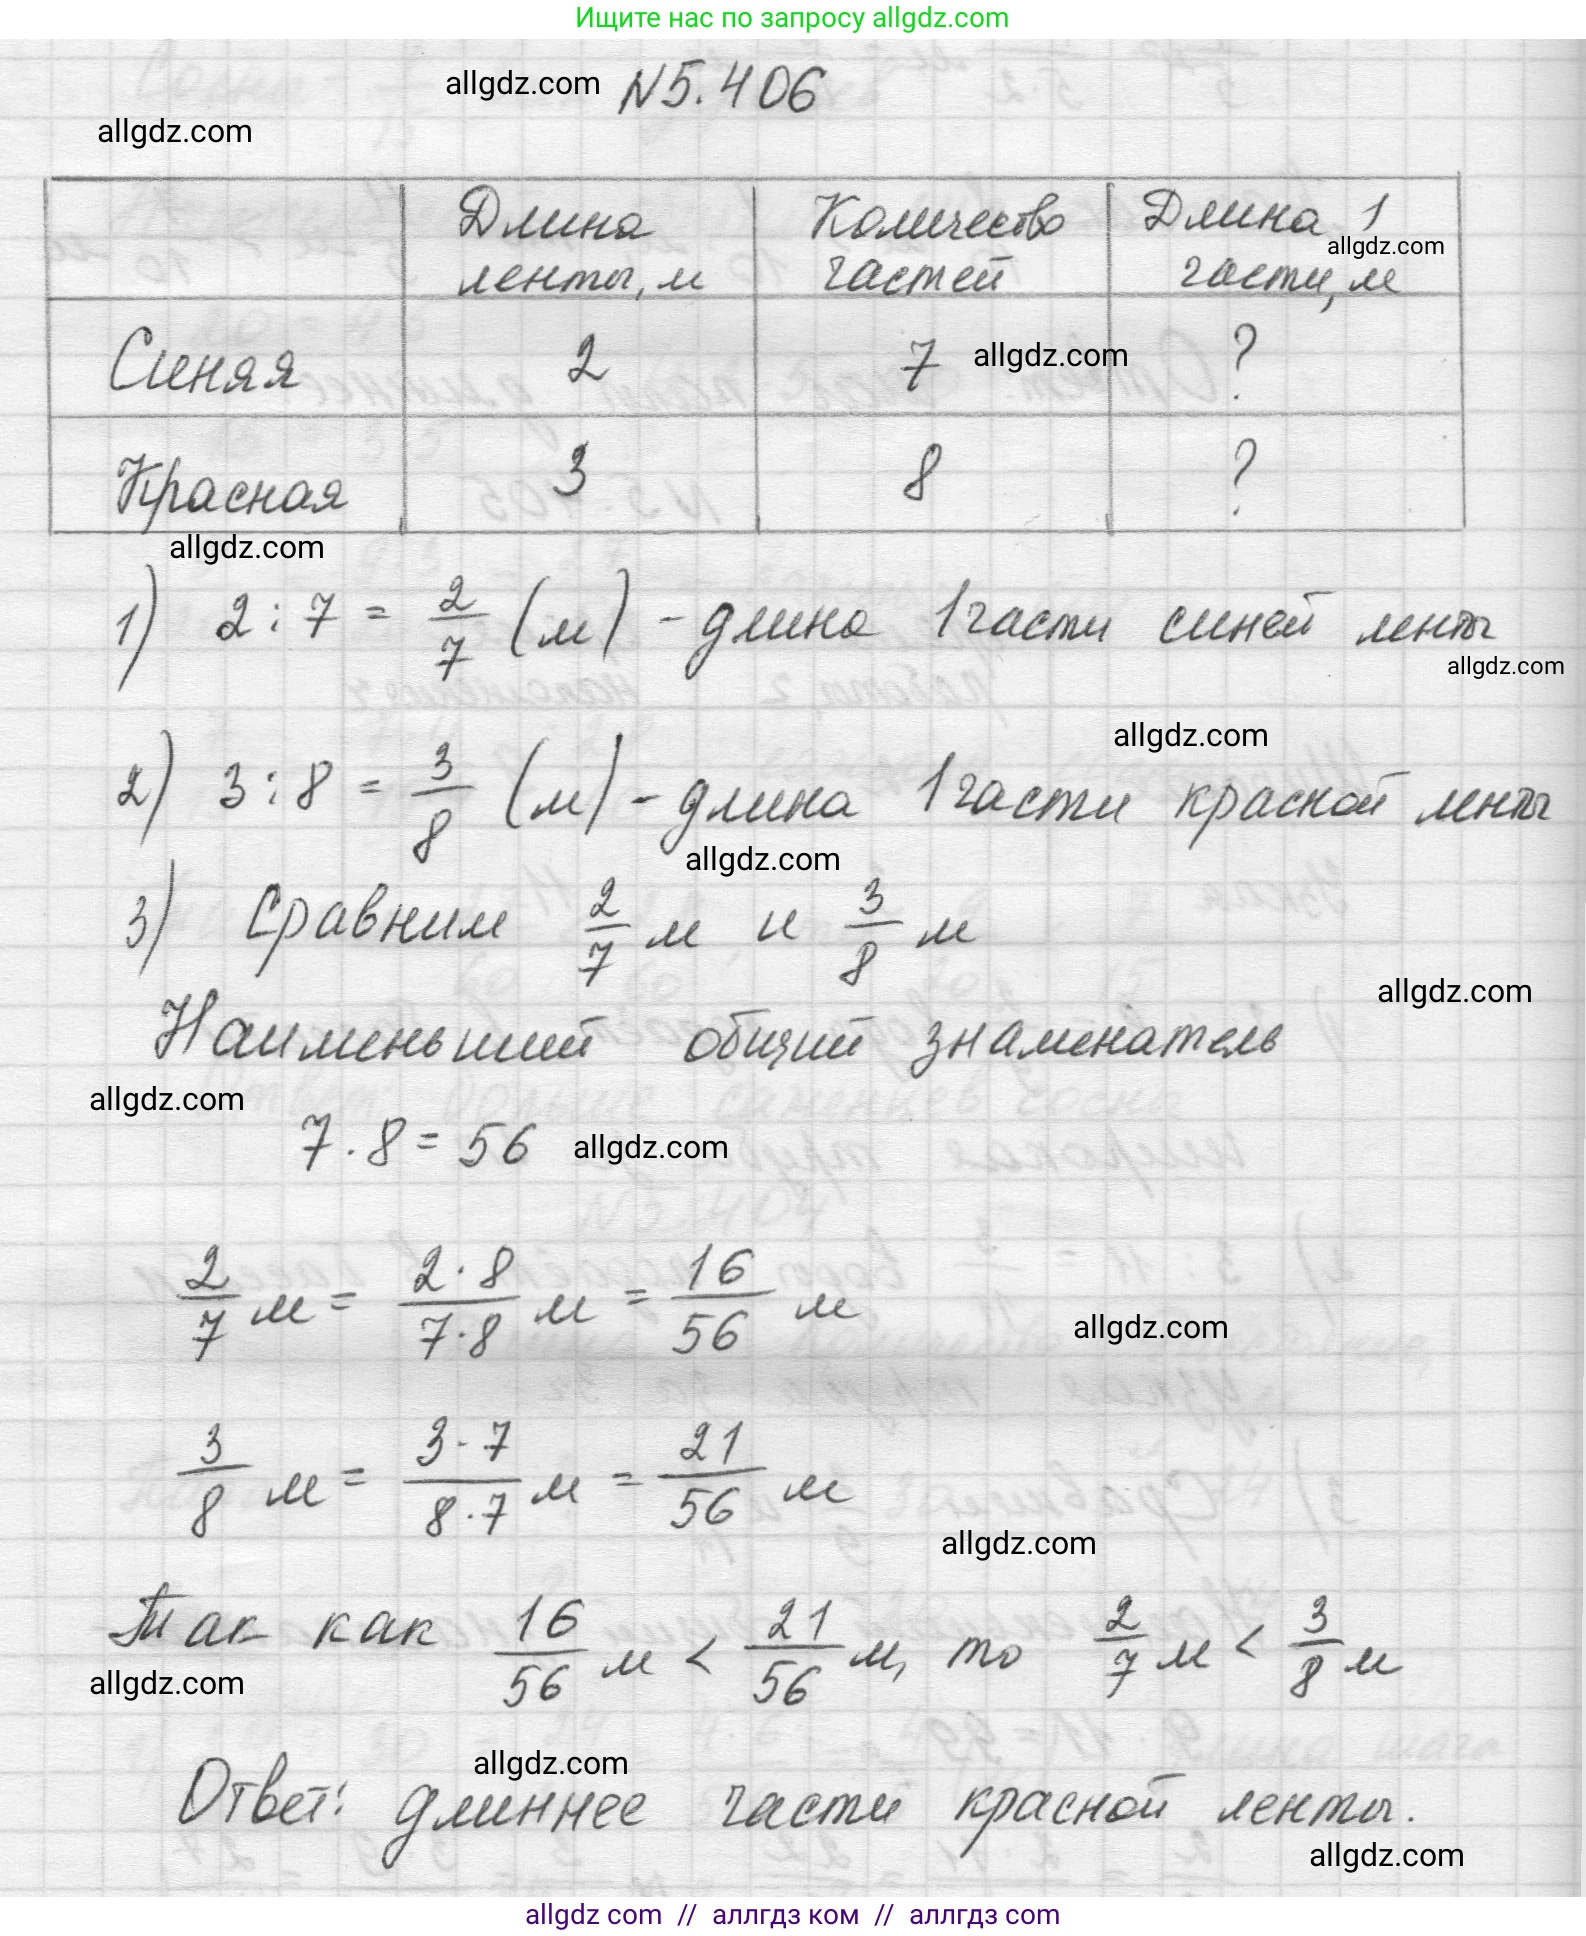 Ищите нас по запросу allgdz.com
allgdz.com N5.406
allgdz.com
Длина ленты, м Количество частей Длина 1 части, м
allgdz.com
Синяя 2 7 allgdz.com ?
Красная 3 8 ?
allgdz.com
1) 2 : 7 = 2/7 (м) - длина 1 части синей ленты
allgdz.com
allgdz.com
2) 3 : 8 = 3/8 (м) - длина 1 части красной ленты
allgdz.com
3) Сравним 2/7 м и 3/8 м
allgdz.com
Наименьший общий знаменатель
allgdz.com
7 · 8 = 56 allgdz.com
2/7 м = 2·8/7·8 м = 16/56 м
allgdz.com
3/8 м = 3·7/8·7 м = 21/56 м
allgdz.com
Так как 16/56 м < 21/56 м, то 2/7 м < 3/8 м
allgdz.com
allgdz.com
Ответ: длиннее части красной ленты.
allgdz.com
allgdz com // аллгдз ком // аллгдз com